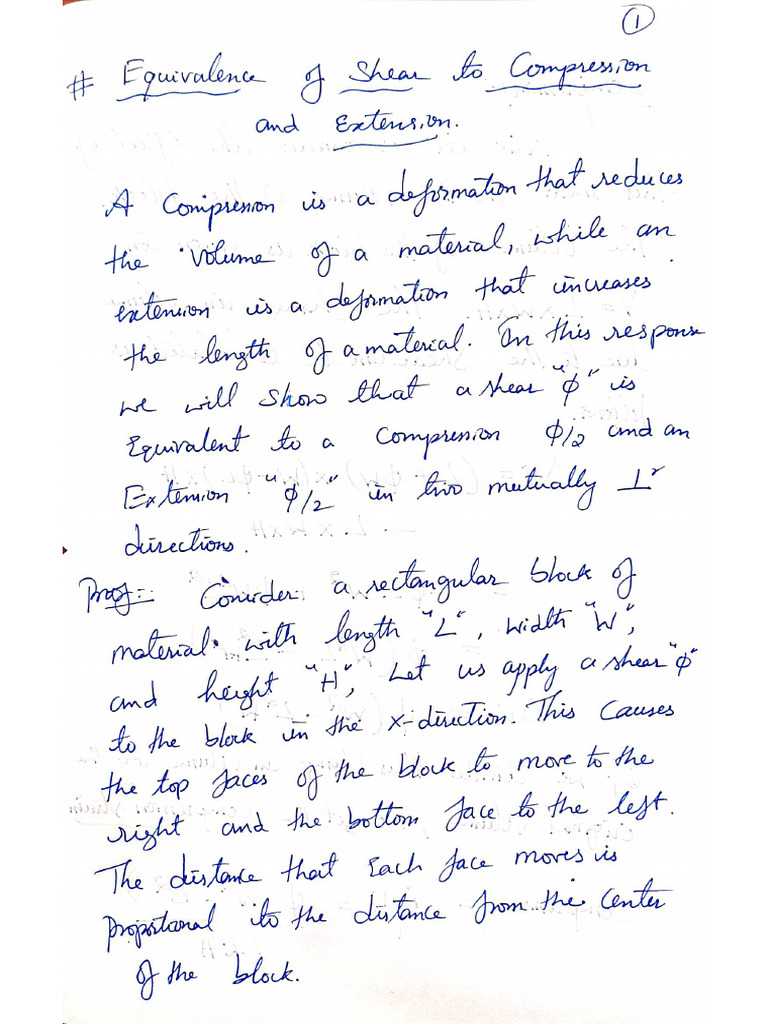 ①
# Equivalence of Shear to Compression
and Extension.
A Compression is a deformation that reduces
the volume of a material, while an
extension is a deformation that increases
the length of a material. In this response
we will show that a shear "ϕ" is
Equivalent to a compression ϕ/2 and an
Extension "ϕ/2" in two mutually ⊥r
directions.
Proof:- Consider a rectangular block of
material with length "L", width "W",
and height "H", Let us apply a shear "ϕ"
to the block in the x-direction. This Causes
the top faces of the block to move to the
right and the bottom face to the left.
The distance that Each face moves is
Proportional to the distance from the center
of the block.